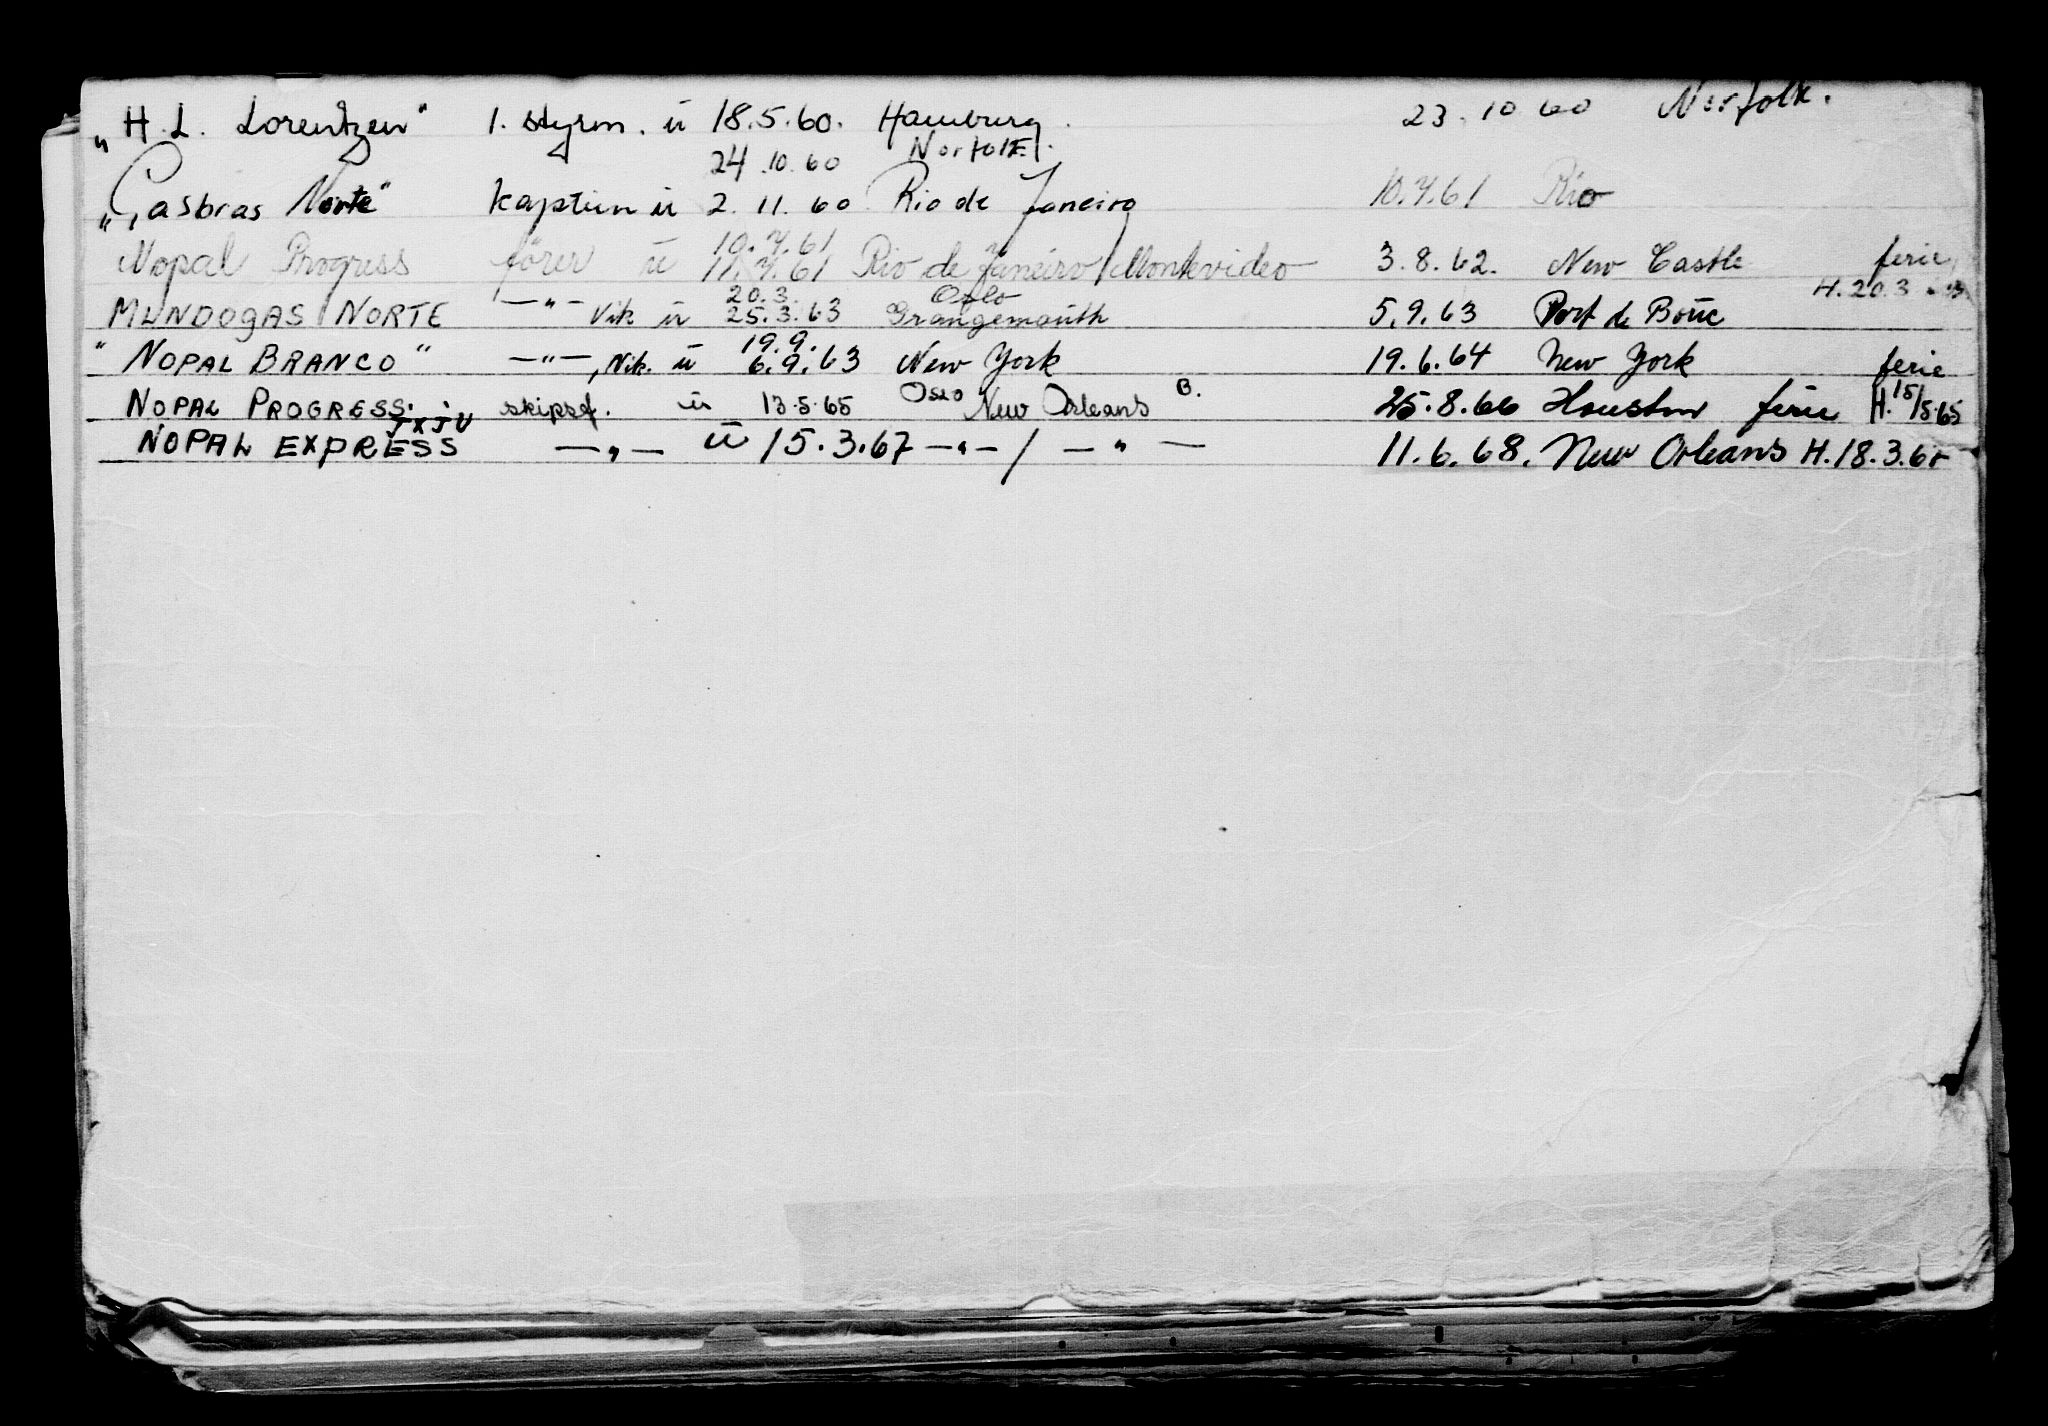 „H. L. Lorentzen" 1. styrm. ü 18.5.60. Hamburg. 23.10.60 Norfolk.
24.10.60 Norfolk.
„Gasbras Norte" kaptein ü 2.11.60 Rio de Janeiro 10.7.61 Rio
10.7.61
Nopal Progress förer ü 11.7.61 Rio de Janeiro/Montevideo 3.8.62. New Castle ferie,
20.3. Oslo H. 20.3
MUNDOGAS NORTE —"— Vik ü 25.3.63 Grangemouth 5.9.63 Port de Boüc
19.9.
"NOPAL BRANCO" —"—, Vik. ü 6.9.63 New York 19.6.64 New York ferie
NOPAL PROGRESS. skipsf. ü 13.5.65 Oslo New Orleans B. 25.8.66 Houston ferie H. 15/5.65
JXJU
NOPAL EXPRESS —"— ü 15.3.67 —"— / —"— 11.6.68. New Orleans H. 18.3.68